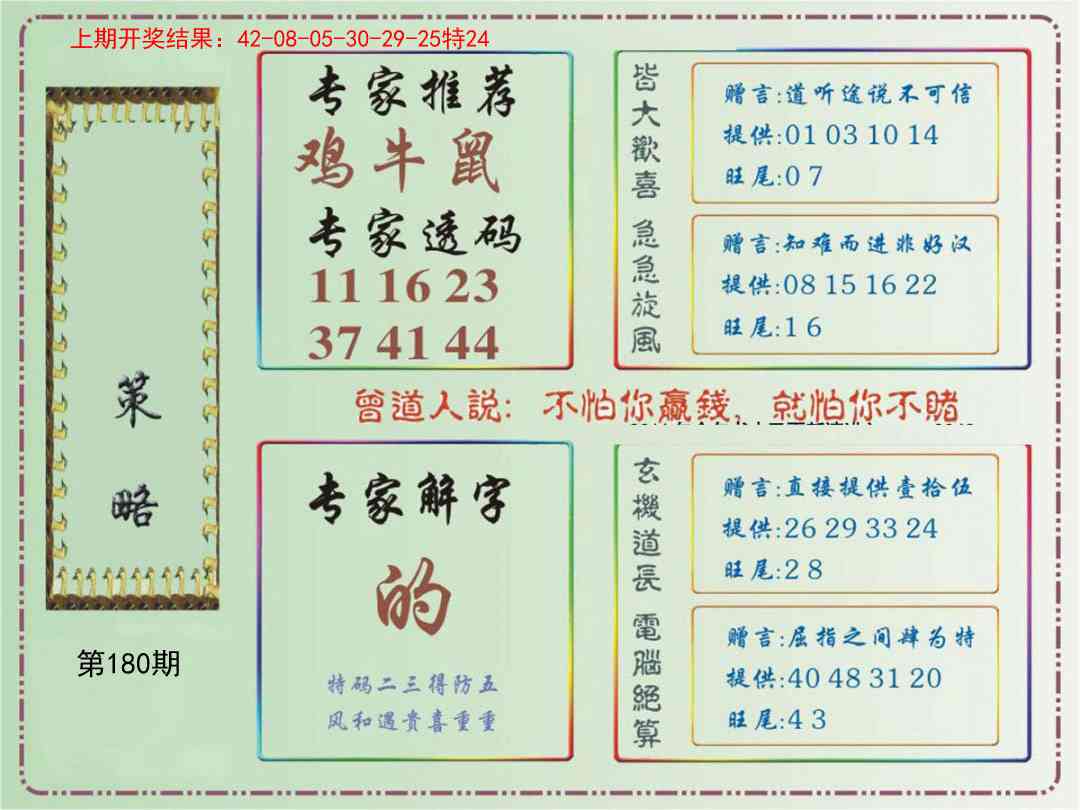 上期开奖结果：42-08-05-30-29-25特24
策
略
第180期
专家推荐
鸡牛鼠
专家透码
11 16 23
37 41 44
皆大歡喜
赠言:道听途说不可信
提供:01 03 10 14
旺尾:0 7
急急旋風
赠言:知难而进非好汉
提供:08 15 16 22
旺尾:1 6
曾道人説：不怕你贏錢，就怕你不賭
专家解字
的
特码二三得防五
风和遇贵喜重重
玄機道長
赠言:直接提供壹拾伍
提供:26 29 33 24
旺尾:2 8
電腦絕算
赠言:屈指之间肆为特
提供:40 48 31 20
旺尾:4 3